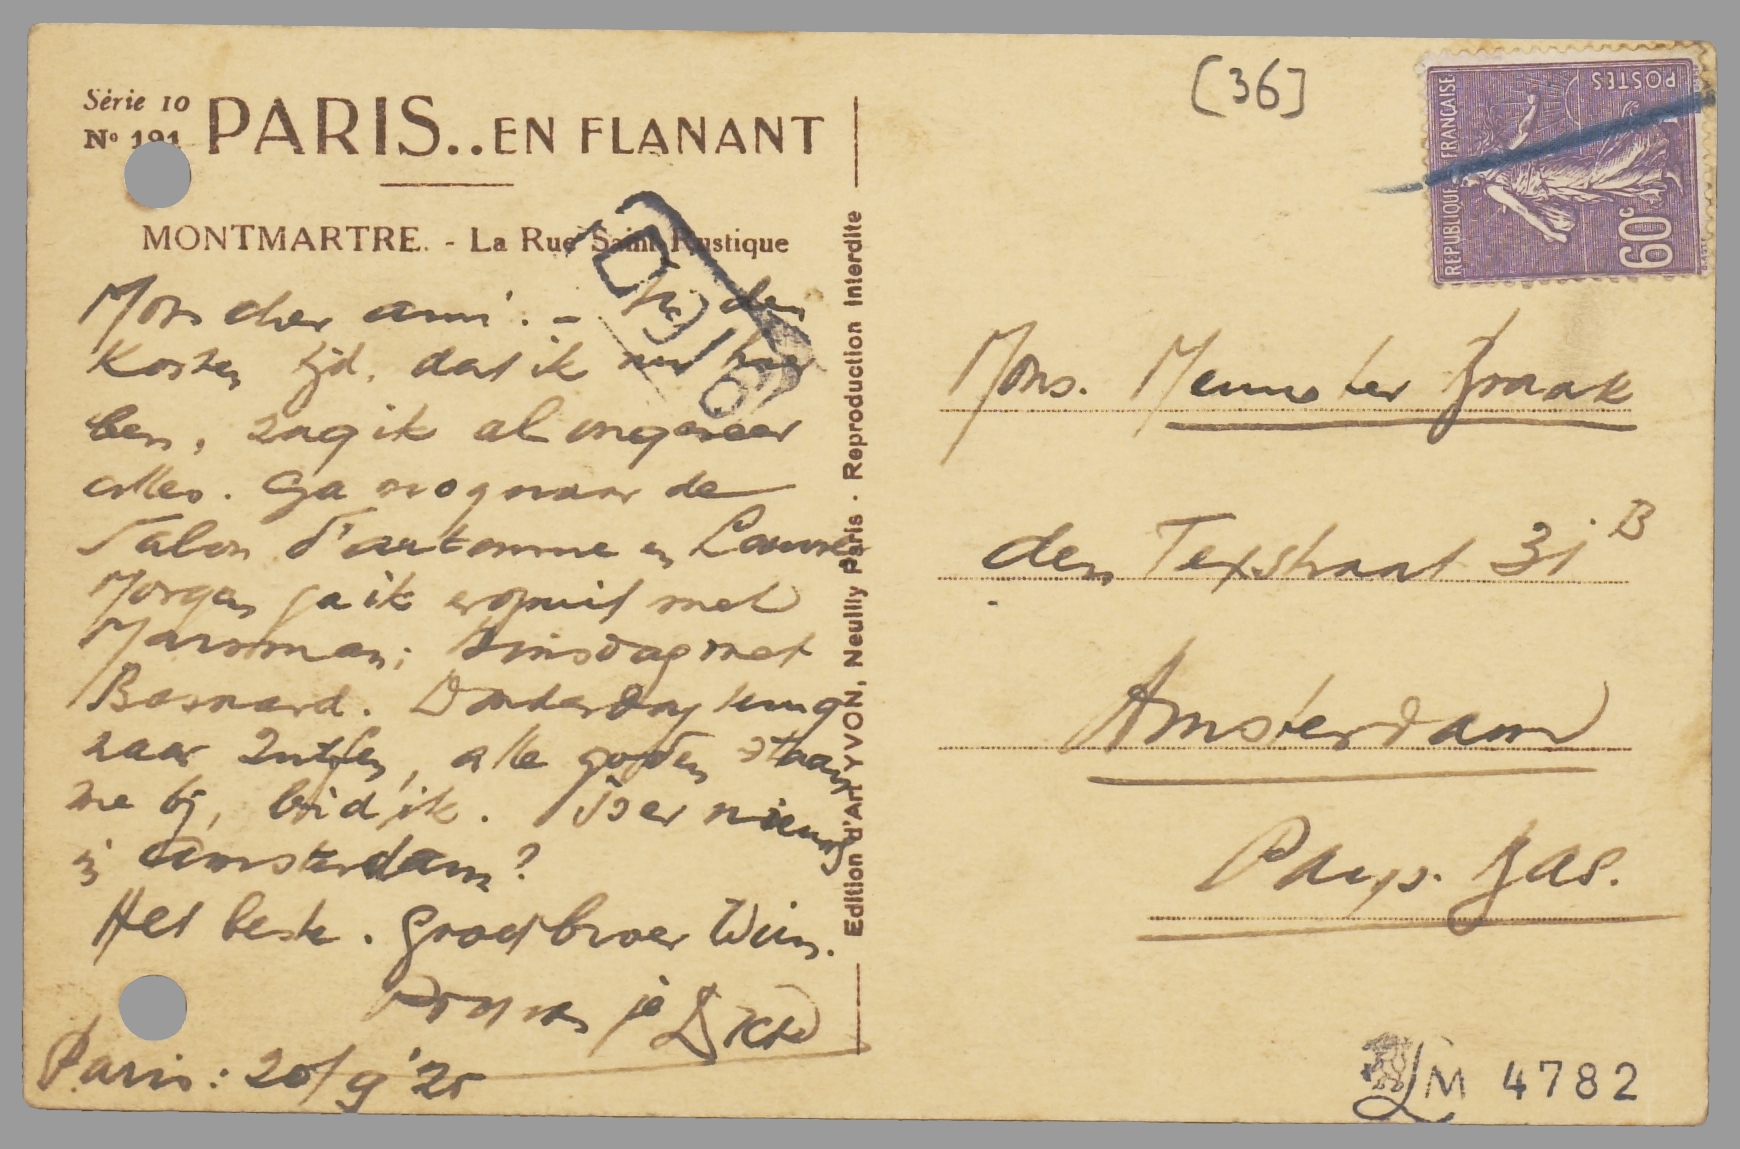 Série 10
Nº 191
PARIS..EN FLANANT
MONTMARTRE. - La Rue Saint Rustique
Mon cher ami. - In den
korten tijd, dat ik nu hier
ben, zag ik al ongeveer
alles. Ga nog naar de
Salon d'automne en Louvre
Morgen ga ik eropuit met
Marsman; Dinsdag met
Donderdag terug
naar Zutfen, alle goden staan
me bij, bid ik. Is er nieuws
in Amsterdam?
Het beste. Groet broer Wim.
van je Dick
Paris: 20/9 '25
Edition d'Art YVON, Neuilly Paris · Reproduction Interdite
[36]
REPUBLIQUE FRANÇAISE
POSTES
60c
Mons. Menno ter Braak
den Texstraat 31 B
Amsterdam
Pays. Bas.
LM 4782